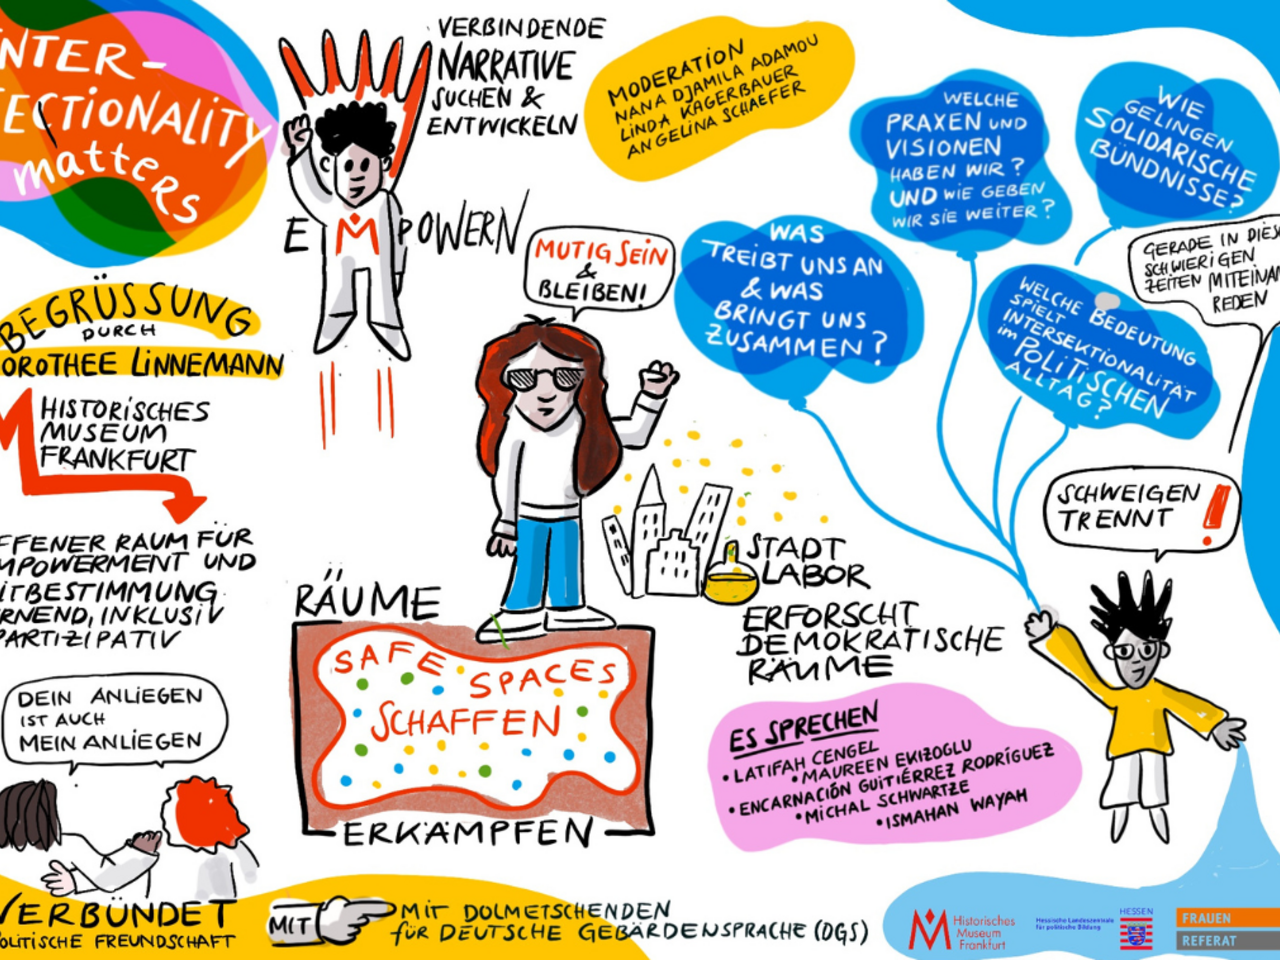 INTER-
SECTIONALITY
matters
VERBINDENDE
NARRATIVE
SUCHEN &
ENTWICKELN
MODERATION
NANA DJAMILA ADAMOU
LINDA KAGERBAUER
ANGELINA SCHAEFER
WELCHE
PRAXEN UND
VISIONEN
HABEN WIR?
UND WIE GEBEN
WIR SIE WEITER?
WIE
GELINGEN
SOLIDARISCHE
BÜNDNISSE?
EMPOWERN
MUTIG SEIN
&
BLEIBEN!
WAS
TREIBT UNS AN
& WAS
BRINGT UNS
ZUSAMMEN?
GERADE IN DIESEN
SCHWIERIGEN
ZEITEN MITEINAN
REDEN
WELCHE BEDEUTUNG
SPIELT
INTERSEKTIONALITÄT
im POLITISCHEN
ALLTAG?
BEGRÜSSUNG
DURCH
DOROTHEE LINNEMANN
HISTORISCHES
MUSEUM
FRANKFURT
OFFENER RAUM FÜR
EMPOWERMENT UND
MITBESTIMMUNG
LERNEND, INKLUSIV
PARTIZIPATIV
SCHWEIGEN
TRENNT !
STADT
LABOR
ERFORSCHT
DEMOKRATISCHE
RÄUME
RÄUME
SAFE SPACES
SCHAFFEN
ERKÄMPFEN
DEIN ANLIEGEN
IST AUCH
MEIN ANLIEGEN
ES SPRECHEN
• LATIFAH CENGEL
• MAUREEN EKIZOGLU
• ENCARNACIÓN GUITIÉRREZ RODRÍGUEZ
• MICHAL SCHWARTZE
• ISMAHAN WAYAH
VERBÜNDET
POLITISCHE FREUNDSCHAFT
MIT
MIT DOLMETSCHENDEN
für DEUTSCHE GEBÄRDENSPRACHE (DGS)
Historisches
Museum
Frankfurt
Hessische Landeszentrale
für politische Bildung
HESSEN
FRAUEN
REFERAT